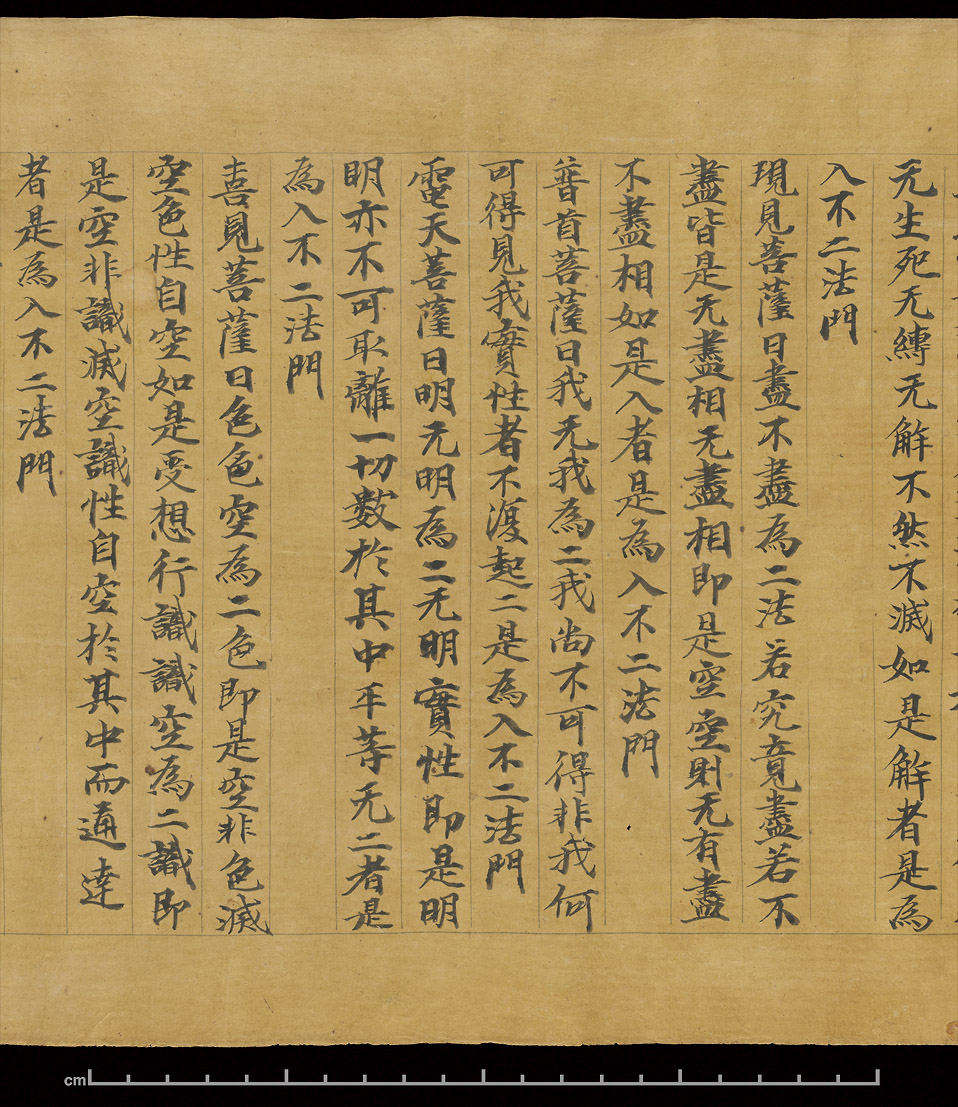 无生死无縛无解不然不滅如是解者是為
入不二法門
現見菩薩曰盡不盡為二法若究竟盡若不
盡皆是无盡相无盡相即是空空則无有盡
不盡相如是入者是為入不二法門
普首菩薩曰我无我為二我尚不可得非我何
可得見我實性者不復起二是為入不二法門
電天菩薩曰明无明為二无明實性即是明
明亦不可取離一切數於其中平等无二者是
為入不二法門
喜見菩薩曰色色空為二色即是空非色滅
空色性自空如是受想行識識空為二識即
是空非識滅空識性自空於其中而通達
者是為入不二法門